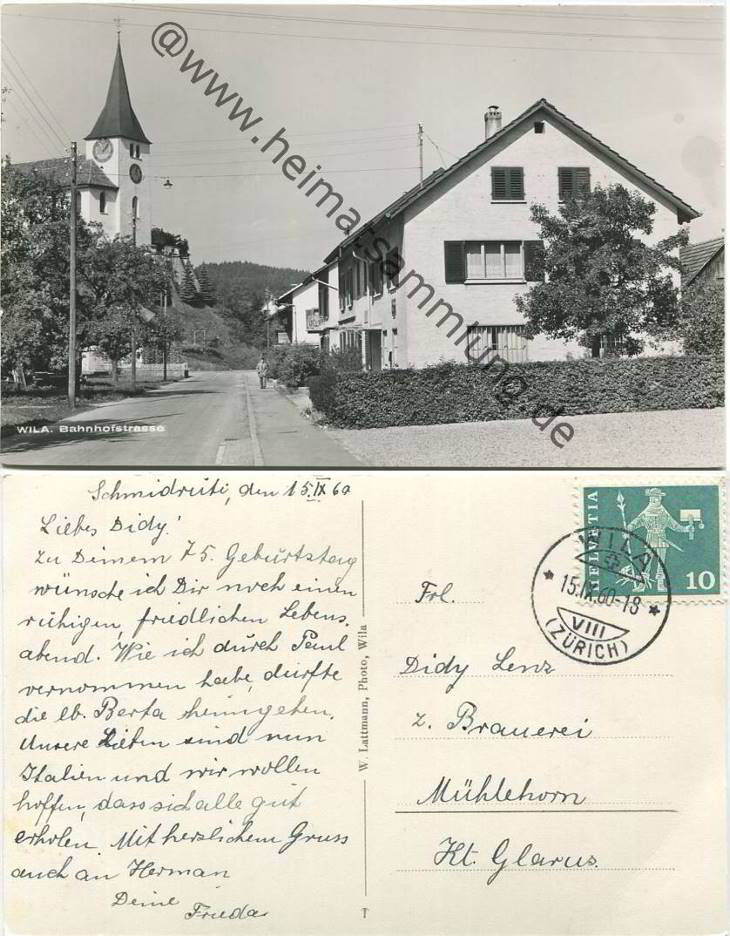 @www.heimat-sammlung.de
WILA. Bahnhofstrasse
Schmidrüti, den 15.IX 60
Liebes Didy!
Zu Deinem 75. Geburtstag
wünsche ich Dir noch einen
ruhigen, friedlichen Lebens.
abend. Wie ich durch Paul
vernommen habe, durfte
die lb. Berta heimgehen.
Unsere Lieben sind nun
Italien und wir wollen
hoffen, dass sich alle gut
erholen. Mit herzlichem Gruss
auch an Herman
Deine
Frieda
W. Lattmann, Photo, Wila
HELVETIA
10
WILA
15.IX.60-18
VIII
(ZÜRICH)
Frl.
Didy Lenz
z. Brauerei
Mühlehorn
Kt. Glarus.